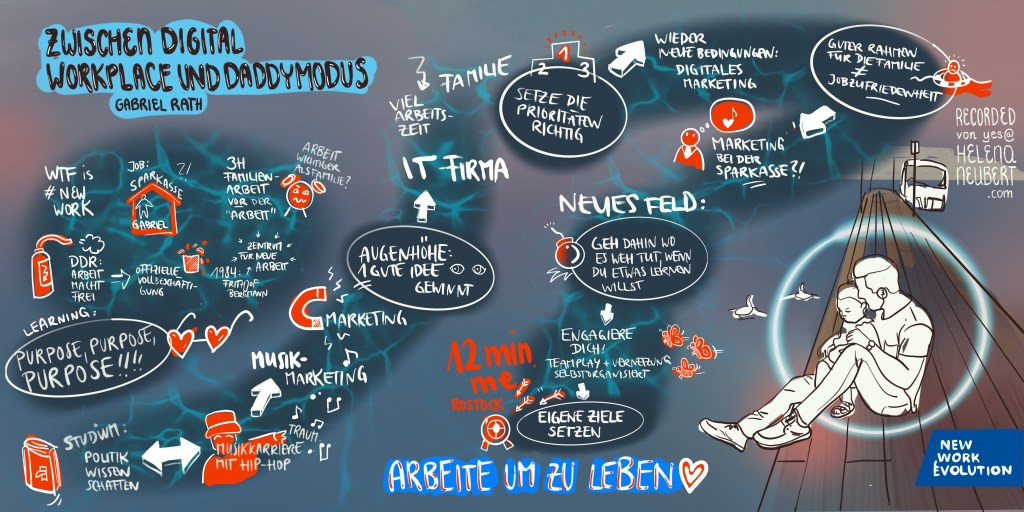 ZWISCHEN DIGITAL
WORKPLACE UND DADDYMODUS
GABRIEL RATH
WTF is
# NEW
WORK
JOB:
SPARKASSE
?!
GABRIEL
3H
FAMILIEN-
ARBEIT
VOR DER
"ARBEIT"
ARBEIT
WICHTIGER
ALS FAMILIE?
DDR:
ARBEIT
MACHT
FREI
OFFIZIELLE
VOLLBESCHÄFTI-
GUNG
1984:
FRITHJOF
BERGMANN
ZENTRUM
FÜR NEUE
ARBEIT
LEARNING:
PURPOSE, PURPOSE,
PURPOSE!!!!
STUDIUM:
POLITIK
WISSEN
SCHAFTEN
MUSIKKARRIERE
MIT HIP-HOP
TRAUM
MUSIK-
MARKETING
MARKETING
AUGENHÖHE:
1 GUTE IDEE
GEWINNT
IT FIRMA
VIEL
ARBEITS-
ZEIT
FAMILIE
1
2 3
SETZE DIE
PRIORITÄTEN
RICHTIG
WIEDER
NEUE BEDINGUNGEN:
DIGITALES
MARKETING
GUTER RAHMEN
FÜR DIE FAMILIE
≠
JOBZUFRIEDENHEIT
MARKETING
BEI DER
SPARKASSE?!
NEUES FELD:
GEH DAHIN WO
ES WEH TUT, WENN
DU ETWAS LERNEN
WILLST
ENGAGIERE
DICH!
TEAMPLAY + VERNETZUNG
SELBSTORGANISIERT
12min
me
ROSTOCK
EIGENE ZIELE
SETZEN
ARBEITE UM ZU LEBEN
RECORDED
von yes@
HELENA
NEUBERT
.com
NEW
WORK
EVOLUTION